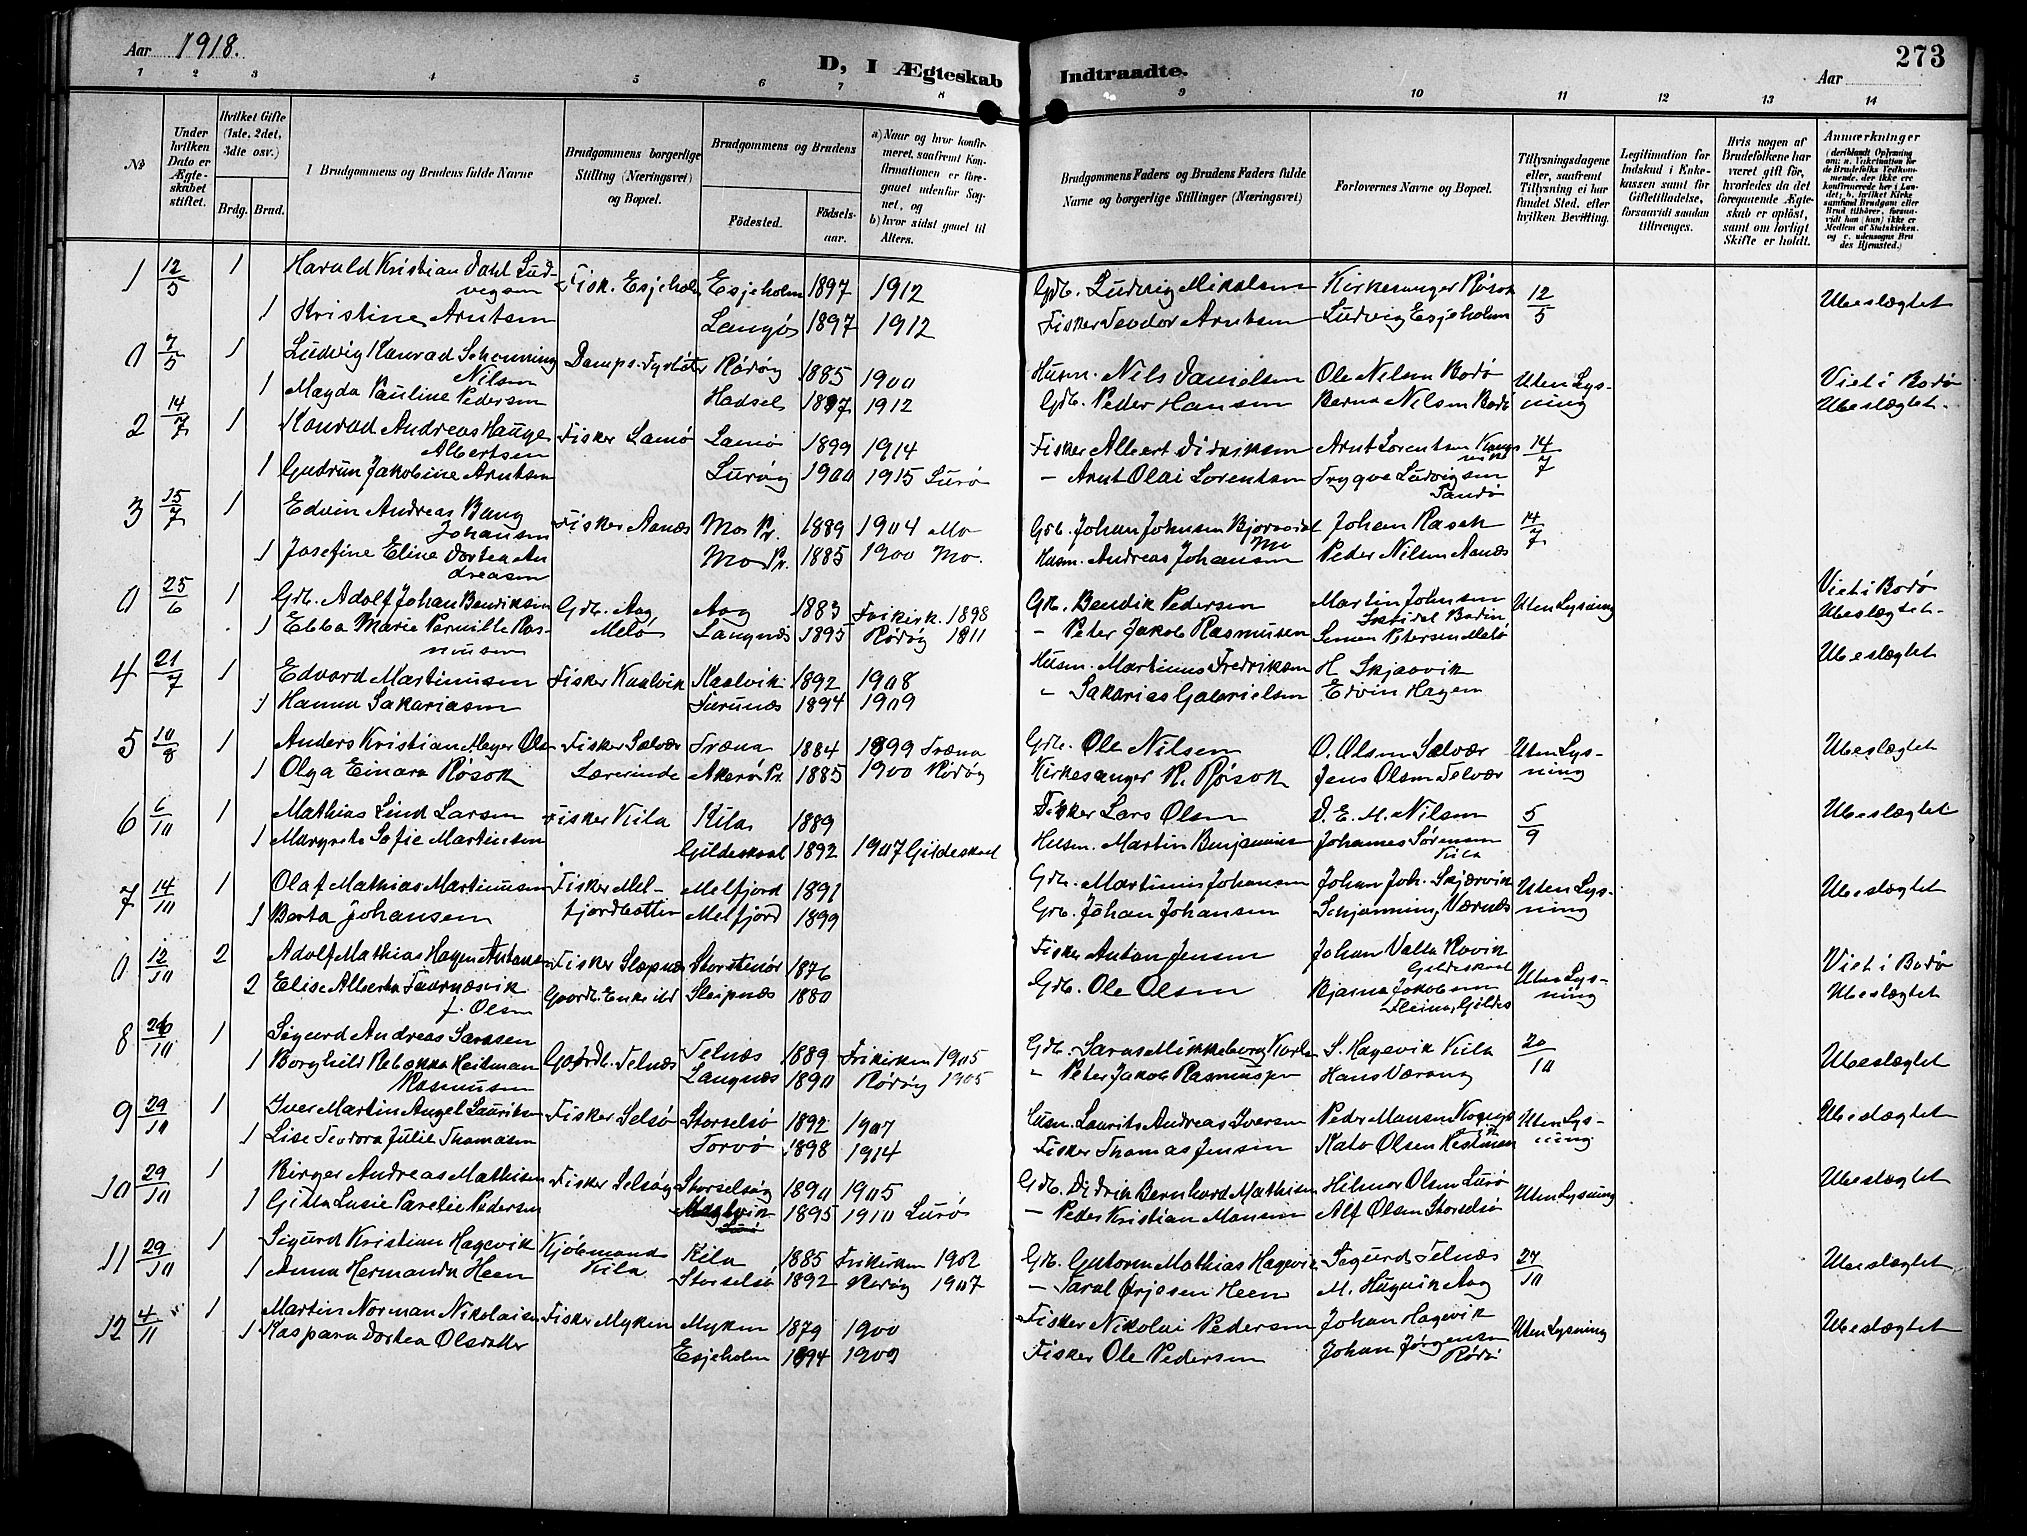 Aar 1918.
D, I Ægteskab Indtraadte.
273
Aar
1 2 3 4 5 6 7 8 9 10 11 12 13 14
№
Under hvilken Dato er Ægteskabet stiftet.
Hvilket Gifte (1ste, 2det, 3dte osv.)
Brdg. Brud.
I Brudgommens og Brudens fulde Navne
Brudgommens borgerlige Stilling (Næringsvei) og Bopæl.
Brudgommens og Brudens
Fødested. Fødselsaar.
a) Naar og hvor konfirmeret, saafremt Konfirmationen er foregaaet udenfor Sognet, og
b) hvor sidst gaaet til Alters.
Brudgommens Faders og Brudens Faders fulde Navne og borgerlige Stillinger (Næringsvei)
Forlovernes Navne og Bopæl.
Tillysningsdagene eller, saafremt Tillysning ei har fundet Sted, efter hvilken Bevilling.
Legitimation for Indskud i Enkekassen samt for Giftetilladelse, forsaavidt saadan tiltrænges.
Hvis nogen af Brudefolkene har været gift før, hvorledes da det foregaaende Ægteskab er opløst, samt om lovligt Skifte er holdt.
Anmærkninger
1 12/5 1 Harald Kristian Dahl Ludvegsen Fisk. Esjeholm Esjeholm 1897 1912 Gdb. Ludvig Mikalsen Kirkesanger Røsok 12/5 Ubeslægtet
1 Kristine Arntsen Langø 1897 1912 Fisker Teodor Arntsen Ludvig Esjeholm
0 7/5 1 Ludvig Konrad Schønning Nilsen Damps. Fyrbøter Rødøy 1885 1900 Husm. Nils Danielsen Ole Nilsen Bodø Uten Lysning Viet i Bodø
1 Magda Pauline Pedersen Hadsel 1897 1912 Gdb. Peder Hansen Berna Nilsen Bodø Ubeslægtet.
2 14/7 1 Konrad Andreas Hauge Albertsen Fisker Lamø Lamø 1899 1914 Fisker Albert Didriksen Arnt Lorentsen 14/7
1 Gudrun Jakobine Arntsen Lurøy 1900 1915 Lurø - Arnt Olai Lorentsen Trygve Ludvigsen Sandø
3 15/7 1 Edvin Andreas Bang Johansen Fisker Aanæs Mo Pr. 1889 1904 Mo Gdb. Johan Johnsen Mo Johan Rasch 14/7
1 Josefine Eline Dortea Andreasen Mo Pr. 1885 1900 Mo. Husm. Andreas Johansen Peder Nilsen Aanæs
0 25/6 1 Gdb. Adolf Johan Bendiksen Gdb. Aag Melø Aag 1883 Frikirk. 1898 Gdb. Bendik Pedersen Martin Johnsen Bodin Uten Lysning Viet i Bodø
1 Ebba Marie Pernille Rasmusen Langnæs 1895 Rødøy 1811 - Peter Jakob Rasmusen Simon Petersen Melø Ubeslægtet.
4 21/7 1 Edvard Martinusen Fisker Kaalvik Kaalvik 1892 1908 Husm. Martinus Fredriksen H. Skjærvik Ubeslægtet
1 Hanna Sakariasen Furunæs 1894 1909 " Sakarias Gabrielsen Edvin Hagen
5 10/8 1 Anders Kristian Meyer Olsen Fisker Selvær Træna 1884 1899 Træna Gdb. Ole Nilsen O. Olsen Selvær Uten Lysning Ubeslægtet
1 Olga Einara Røsok Lærerinde Akerø Pr. 1885 1900 Rødøy Kirkesanger R. Røsok Jens Olsen Selvær
6 6/10 1 Mathias Lind Larsen Fisker Kila Kila 1889 Fisker Lars Olsen D. E. M. Nilsen 5/9 Ubeslægtet
1 Margrete Sofie Martinsen Gildeskaal 1892 1907 Gildeskaal Husm. Martin Benjaminsen Johannes Sørensen Kila
7 14/10 1 Olaf Mathias Martinusen Fisker Melfjordbotten Melfjord 1891 Gdb. Martinus Johansen Johan Joh. Skjærvik Uten Lysning Ubeslægtet
1 Berta Johansen Melfjord 1899 Gdb. Johan Johansen Schjønning, Værnæs
0 12/10 2 Adolf Mathias Hagen Antonsen Fisker Slæpnæs Storsteinør 1876 Fisker Anton Jensen Johan Valla Gildeskaal Uten Lysning Viet i Bodø
2 Elise Alberta Taarnesvik f. Olsen Gaardb. Enke ibd Sleipnæs 1880 Gdb. Ole Olsen Bjarne Jakobsen Fleina, Gildes Ubeslægtet
8 26/10 1 Sigurd Andreas Larssen Gaardb. Telnæs Telnæs 1889 Frikirken 1905 S. Hagevik Kila 20/10 Ubeslægtet
1 Borghild Rebekka Heitman Rasmusen Langnæs 1890 Rødøy 1905 " Peter Jakob Rasmussen Hans Værang
9 29/10 1 Iver Martin Angel Lauritsen Fisker Selsø Storselsø 1892 1907 Husm. Laurits Andreas Iversen Peder Monsen Uten Lysning Ubeslægtet
1 Lise Teodora Julie Thomasen Torvø 1898 1914 Fisker Thomas Jensen Kato Olsen Hestmon
10 29/10 1 Birger Andreas Mathisen Fisker Selsøy Storselsøy 1890 1905 Gdb. Didrik Bernhard Mathisen Hilmar Olsen Lurø Uten Lysning Ubeslægtet
1 Gitta Lusie Parelie Pedersen Lurø 1895 1910 Lurø - Peder Kristian Monsen Alf Olsen Storselsø
11 29/10 1 Sigurd Kristian Hagevik Kjøbmand Kila Kila 1885 Frikirken 1902 Gdb. Guttorm Mathias Hagevik Sigurd Telnæs 27/10 Ubeslægtet
1 Anna Hermanda Heen Storselsø 1892 Rødøy 1907 - Taral Ørjesen Heen M. Hagevik Aag
12 4/11 1 Martin Norman Nikolaisen Fisker Myken Myken 1879 1900 Fisker Nikolai Pedersen Johan Hagevik Uten Lysning Ubeslægtet
1 Kaspara Dortea Olsdatter Esjeholm 1894 1909 Fisker Ole Pedersen Johan Jørgensen Rødø